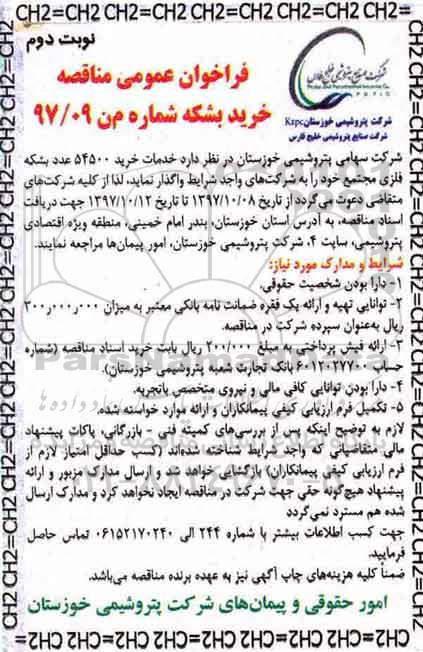 CH2=CH2 CH2=CH2 CH2=CH2 CH2=CH2 CH2=CH2 CH2=CH2
نوبت دوم
شرکت صنایع پتروشیمی خلیج فارس
Persian Gulf Petrochemical Industries Co.
P G P I C
فراخوان عمومی مناقصه
خرید بشکه شماره م‌ن ۹۷/۰۹
شرکت پتروشیمی خوزستان Kzpc
شرکت صنایع پتروشیمی خلیج فارس
شرکت سهامی پتروشیمی خوزستان در نظر دارد خدمات خرید ۵۴۵۰۰ عدد بشکه
فلزی مجتمع خود را به شرکت‌های واجد شرایط واگذار نماید، لذا از کلیه شرکت‌های
متقاضی دعوت می‌گردد از تاریخ ۱۳۹۷/۱۰/۰۸ تا تاریخ ۱۳۹۷/۱۰/۱۲ جهت دریافت
اسناد مناقصه، به آدرس استان خوزستان، بندر امام خمینی، منطقه ویژه اقتصادی
پتروشیمی، سایت ۴، شرکت پتروشیمی خوزستان، امور پیمان‌ها مراجعه نمایند.
شرایط و مدارک مورد نیاز:
۱- دارا بودن شخصیت حقوقی.
۲- توانایی تهیه و ارائه یک فقره ضمانت نامه بانکی معتبر به میزان ۳۰۰٫۰۰۰٫۰۰۰
ریال به‌عنوان سپرده شرکت در مناقصه.
۳- ارائه فیش پرداختی به مبلغ ۲۰۰/۰۰۰ ریال بابت خرید اسناد مناقصه (شماره
حساب ۶۰۱۲۰۲۷۷۰۰ بانک تجارت شعبه پتروشیمی خوزستان).
۴- دارا بودن توانایی کافی مالی و نیروی متخصص باتجربه.
۵- تکمیل فرم ارزیابی کیفی پیمانکاران و ارائه موارد خواسته شده.
لازم به توضیح اینکه پس از بررسی‌های کمیته فنی - بازرگانی، پاکات پیشنهاد
مالی متقاضیانی که واجد شرایط شناخته شده‌اند (کسب حداقل امتیاز لازم از
فرم ارزیابی کیفی پیمانکاران) بازگشایی خواهد شد و ارسال مدارک مزبور و ارائه
پیشنهاد هیچ‌گونه حقی جهت شرکت در مناقصه ایجاد نخواهد کرد و مدارک ارسال
شده هم مسترد نمی‌گردد
جهت کسب اطلاعات بیشتر با شماره ۲۴۴ الی ۰۶۱۵۲۱۷۰۲۴۰ تماس حاصل
فرمایید.
ضمناً کلیه هزینه‌های چاپ آگهی نیز به عهده برنده مناقصه می‌باشد.
امور حقوقی و پیمان‌های شرکت پتروشیمی خوزستان